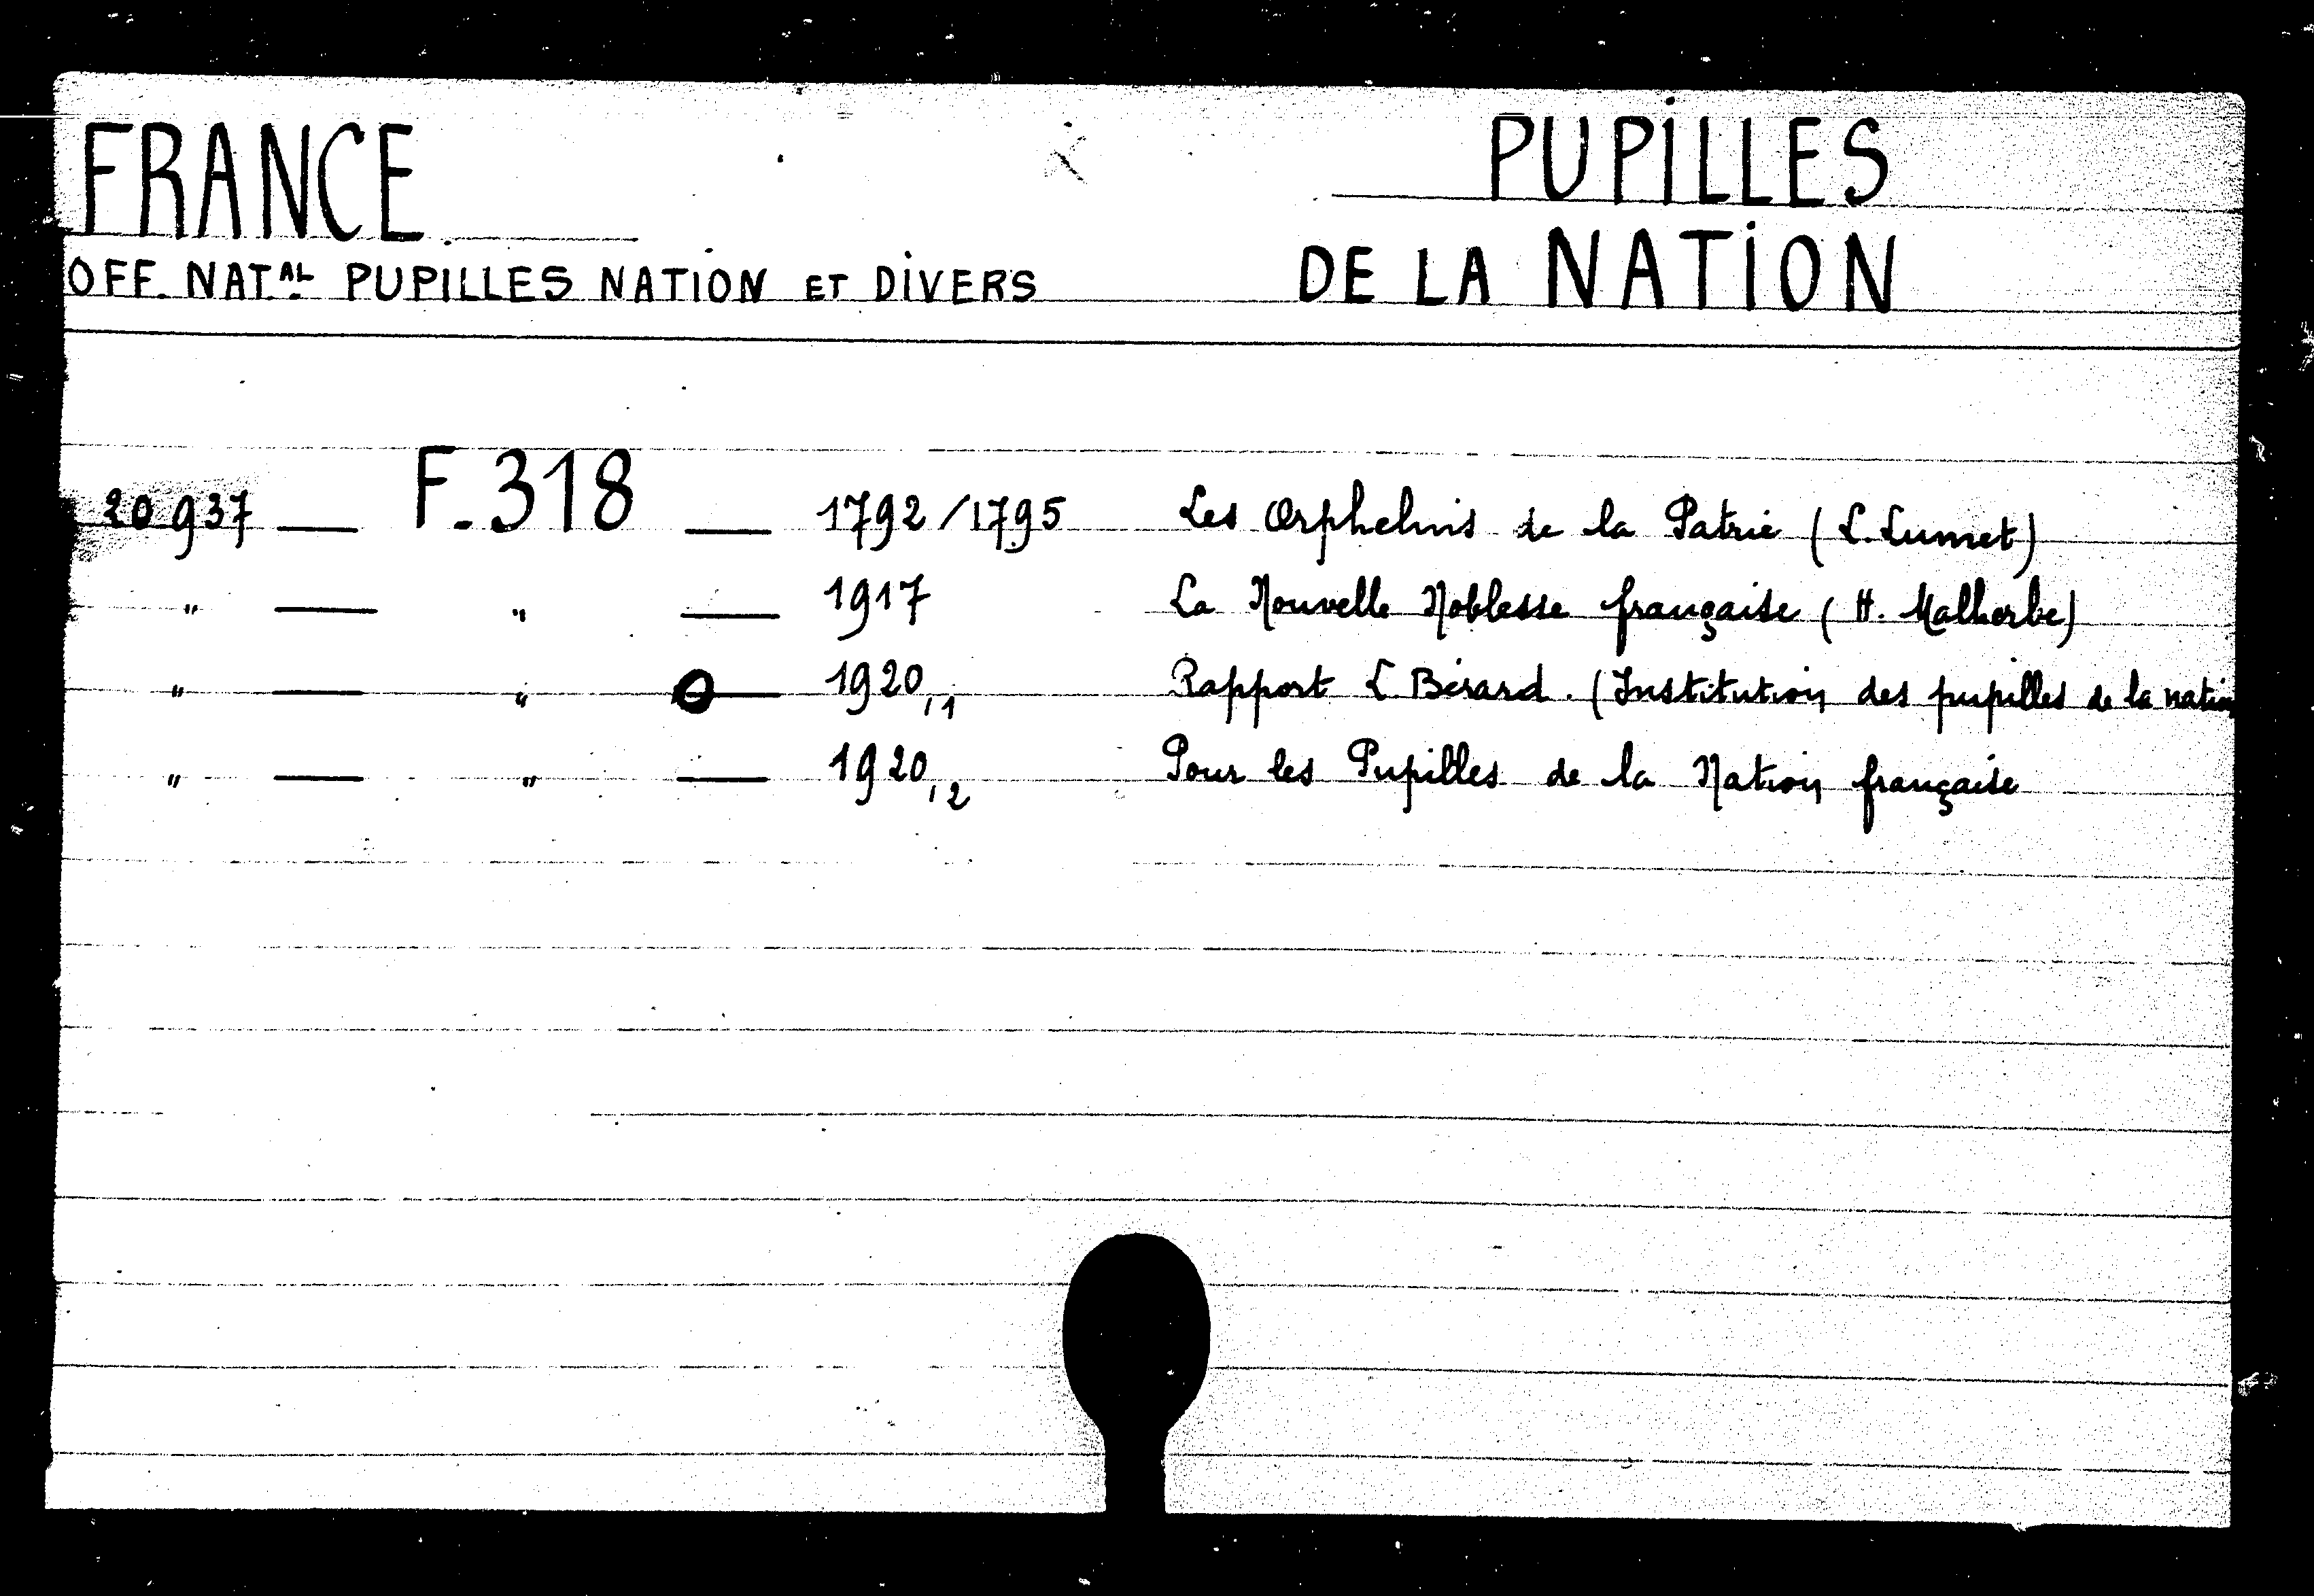 FRANCE
PUPILLES
OFF. NAT.AL PUPILLES NATION ET DIVERS
DE LA NATION
20 937 — F. 318 — 1792/1795 Les Orphelins de la Patrie (L. Lumet)
" — " — 1917 La Nouvelle Noblesse française (H. Malherbe)
" — " — 1920,1 Rapport L Bérard. (Institution des pupilles de la nation
" — " — 1920,2 Pour les Pupilles de la Nation française